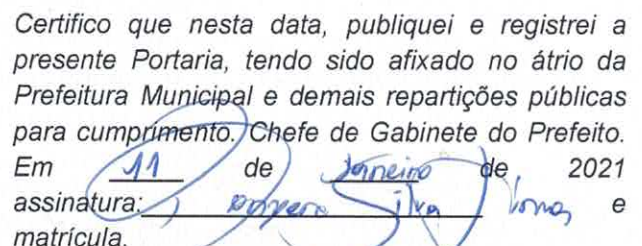 Certifico que nesta data, publiquei e registrei a
presente Portaria, tendo sido afixado no átrio da
Prefeitura Municipal e demais repartições públicas
para cumprimento. Chefe de Gabinete do Prefeito.
Em 11 de Janeiro de 2021
assinatura: Silva e
matrícula.